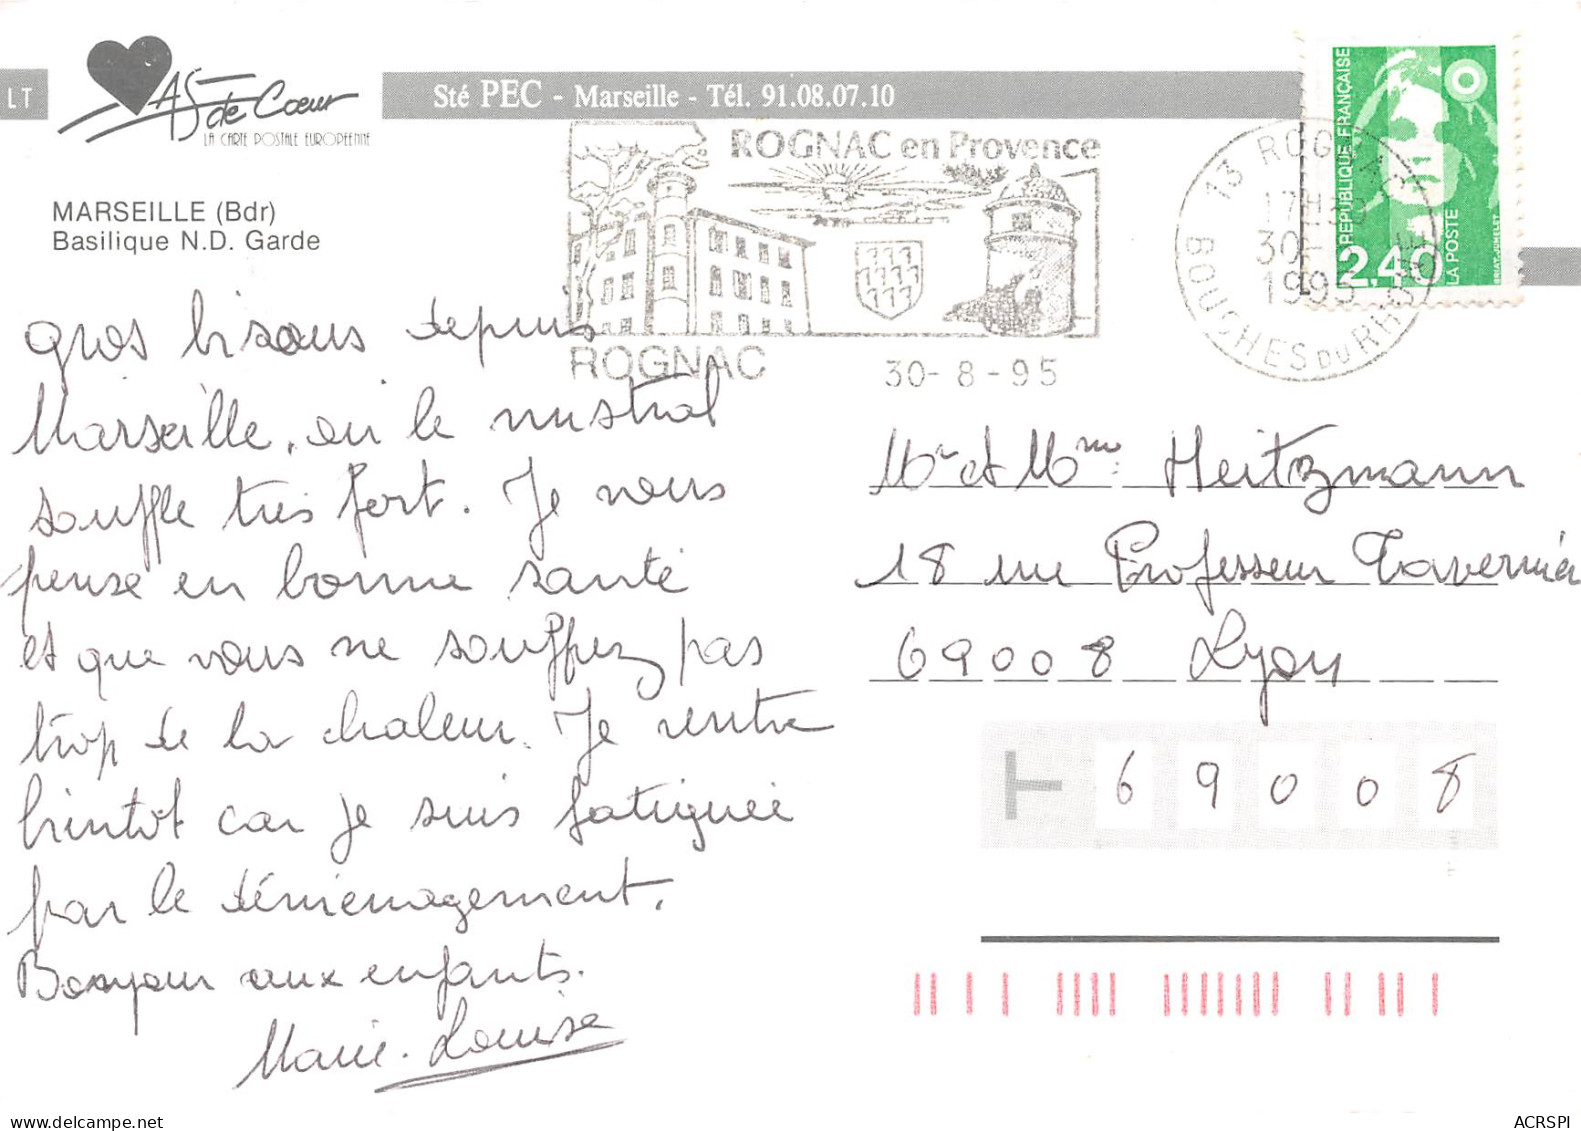 LT
As de Cœur
LA CARTE POSTALE EUROPEENNE
Sté PEC - Marseille - Tél. 91.08.07.10
MARSEILLE (Bdr)
Basilique N.D. Garde
ROGNAC en Provence
ROGNAC
30-8-95
13 ROGNAC
17H
30-
1995
BOUCHES DU RHONE
REPUBLIQUE FRANÇAISE
2,40
LA POSTE
Gros bisous depuis
Marseille, où le mistral
souffle très fort. Je vous
pense en bonne santé
et que vous ne souffrez pas
trop de la chaleur. Je rentre
bientôt car je suis fatiguée
par le déménagement.
Bonjour aux enfants.
Marie-Louise
Mr et Mme Heitzmann
18 rue Professeur Tavernier
69008 Lyon
69008
ACRSPI